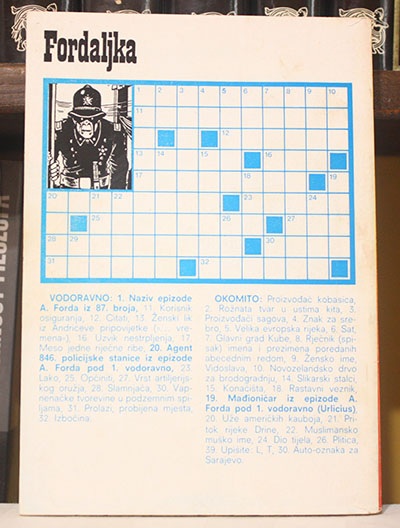 Fordaljka
1 2 3 4 5 6 7 8 9 10
11
12
13 14 15 16
17 18 19
20 21 22 23
24 25 26 27
28 29 30
31 32
VODORAVNO: 1. Naziv epizode
A. Forda iz 87. broja, 11. Korisnik
osiguranja, 12. Citati, 13. Ženski lik
iz Andrićeve pripovijetke («... vre-
mena»), 16. Uzvik nestrpljenja, 17.
Meso jedne riječne ribe, 20. Agent
846. policijske stanice iz epizode
A. Forda pod 1. vodoravno, 23.
Lako, 25. Općiniti, 27. Vrst artiljerij-
skog oružja, 28. Slamnjača, 30. Vap-
nenačke tvorevine u podzemnim spi-
ljama, 31. Prolazi, probijena mjesta,
32. Izbočina.
OKOMITO: Proizvođač kobasica,
2. Rožnata tvar u ustima kita, 3.
Proizvođači sagova, 4. Znak za sre-
bro, 5. Velika evropska rijeka, 6. Sat,
7. Glavni grad Kube, 8. Rječnik (spi-
sak) imena i prezimena poredanih
abecednim redom, 9. Žensko ime,
Vidoslava, 10. Novozelandsko drvo
za brodogradnju, 14. Slikarski stalci,
15. Konačišta, 18. Rastavni veznik,
19. Mađioničar iz epizode A.
Forda pod 1. vodoravno (Urlicius),
20. Uže američkih kauboja, 21. Pri-
tok rijeke Drine, 22. Muslimansko
muško ime, 24. Dio tijela, 26. Plitica,
39. Upišite: L, T, 30. Auto-oznaka za
Sarajevo.